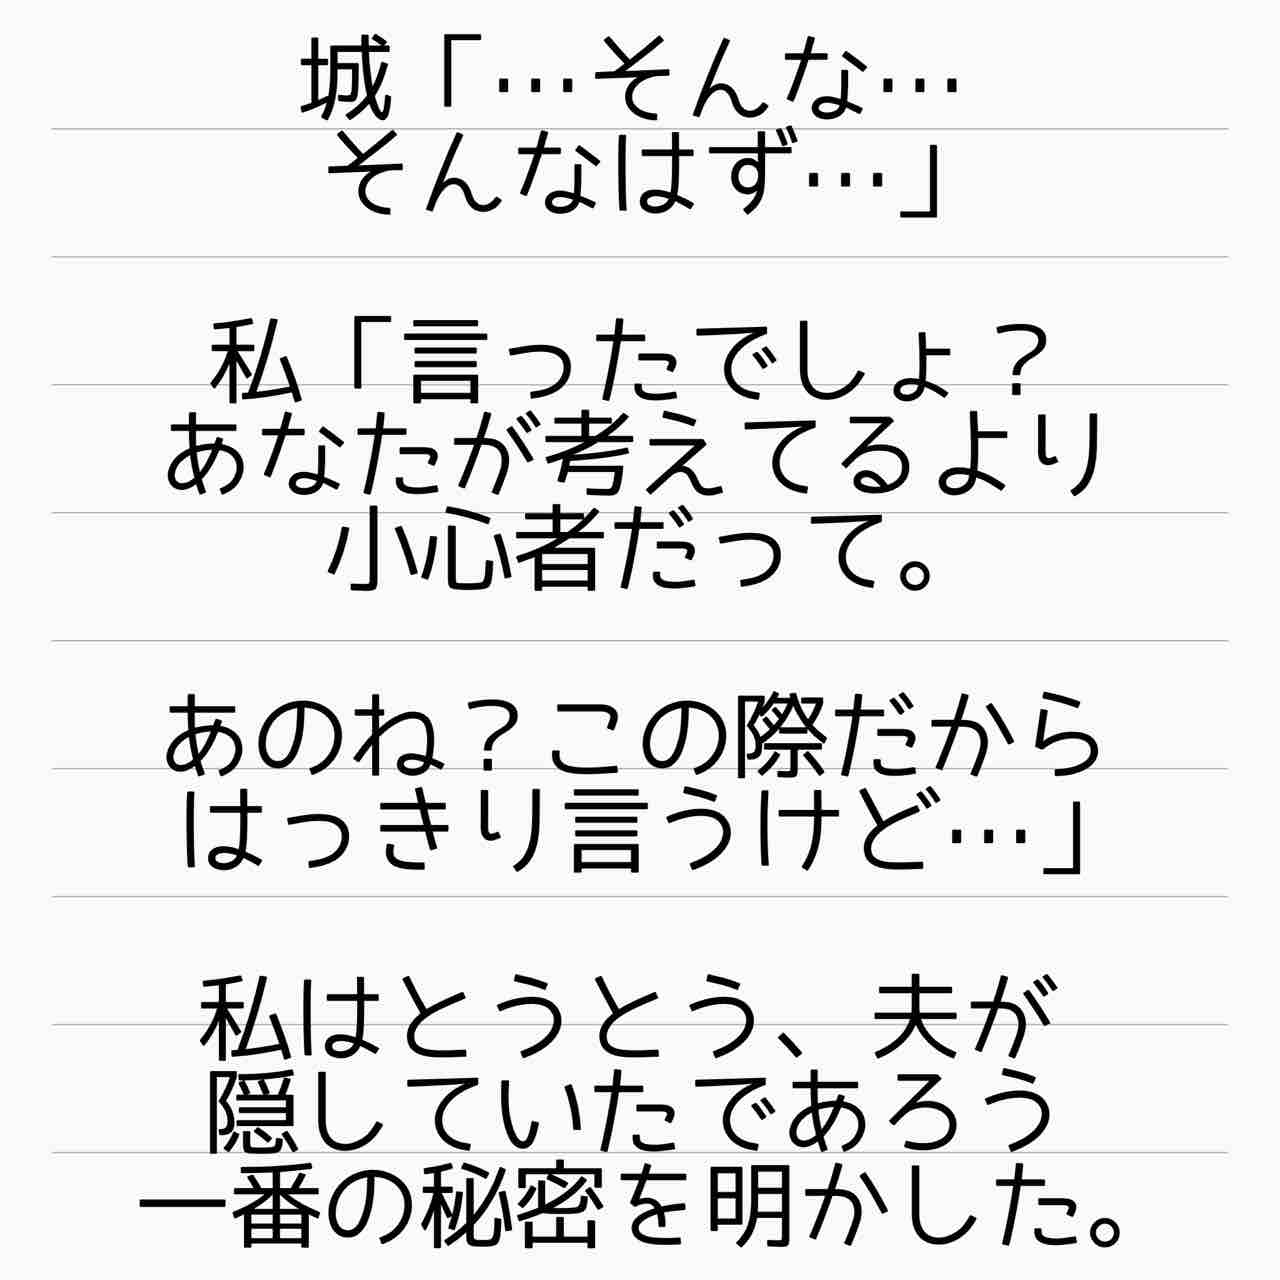 城「…そんな…
そんなはず…」
私「言ったでしょ？
あなたが考えてるより
小心者だって。
あのね？この際だから
はっきり言うけど…」
私はとうとう、夫が
隠していたであろう
一番の秘密を明かした。